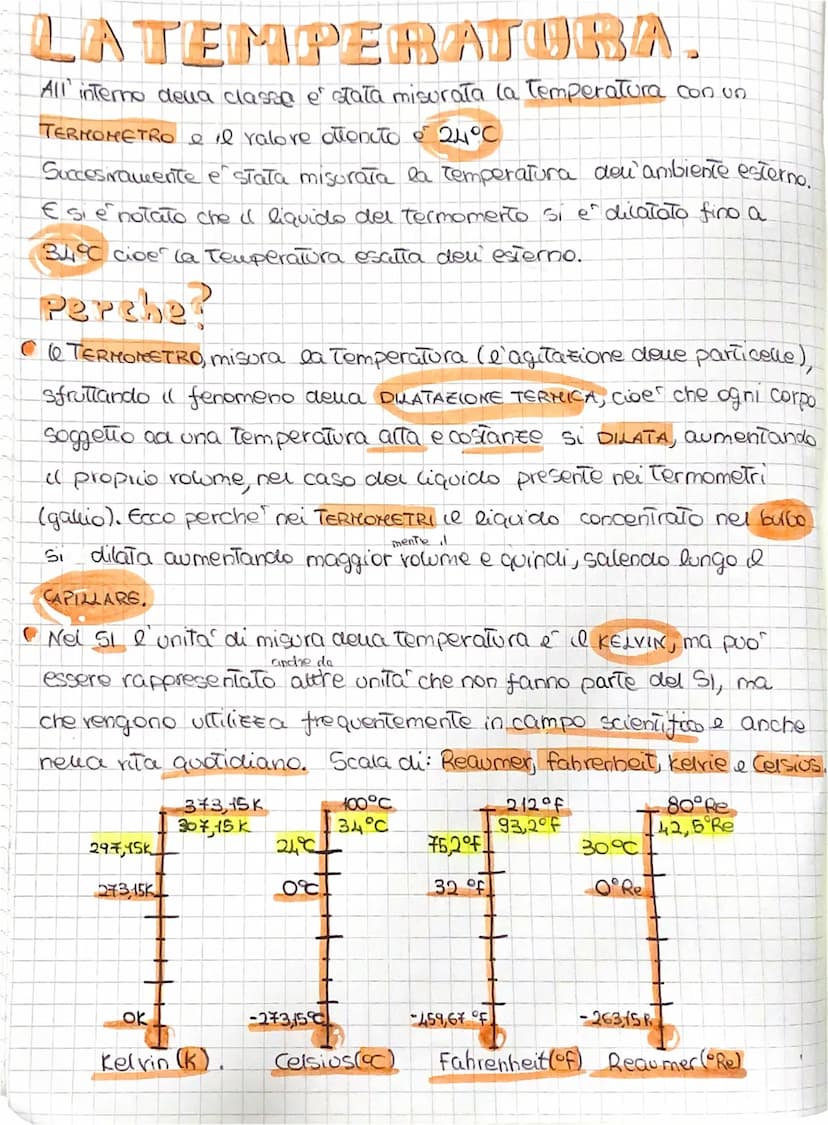 LA TEMPERATURA.
All'interno della classe e' stata misurata la Temperatura con un
TERMOMETRO e il valore ottenuto è 24°C
Successivamente e' stata misurata la temperatura dell'ambiente esterno.
E si e' notato che il liquido del termomerto si e' dilatato fino a
34°C cioe' la temperatura esatta dell'esterno.
Perche?
Il TERMOMETRO, misura la temperatura (l'agitazione delle particelle),
sfruttando il fenomeno della DILATAZIONE TERMICA, cioe' che ogni corpo
soggetto ad una temperatura alta e costante si DILATA, aumentando
il proprio volume, nel caso del liquido presente nei termometri
(gallio). Ecco perche' nei TERMOMETRI il liquido concentrato nel bulbo
si dilata aumentando maggiormente il volume e quindi, salendo lungo il
CAPILLARE.
Nel SI l'unita' di misura della temperatura e' il KELVIN, ma puo'
essere rappresentato anche da altre unita' che non fanno parte del SI, ma
che vengono utilizza frequentemente in campo scientifico e anche
nella vita quotidiano. Scala di: Reaumer, fahrenheit, kelvie e Celsius.
373,15K 100°C 212°F 80°Re
307,15K 34°C 93,2°F 42,5°Re
297,15K 24°C 75,2°F 30°C
273,15K 0°C 32°F 0°Re
0K -273,15°C -459,67°F -263,15R
Kelvin (K). Celsius (°C) Fahrenheit (°F) Reaumer (°Re)